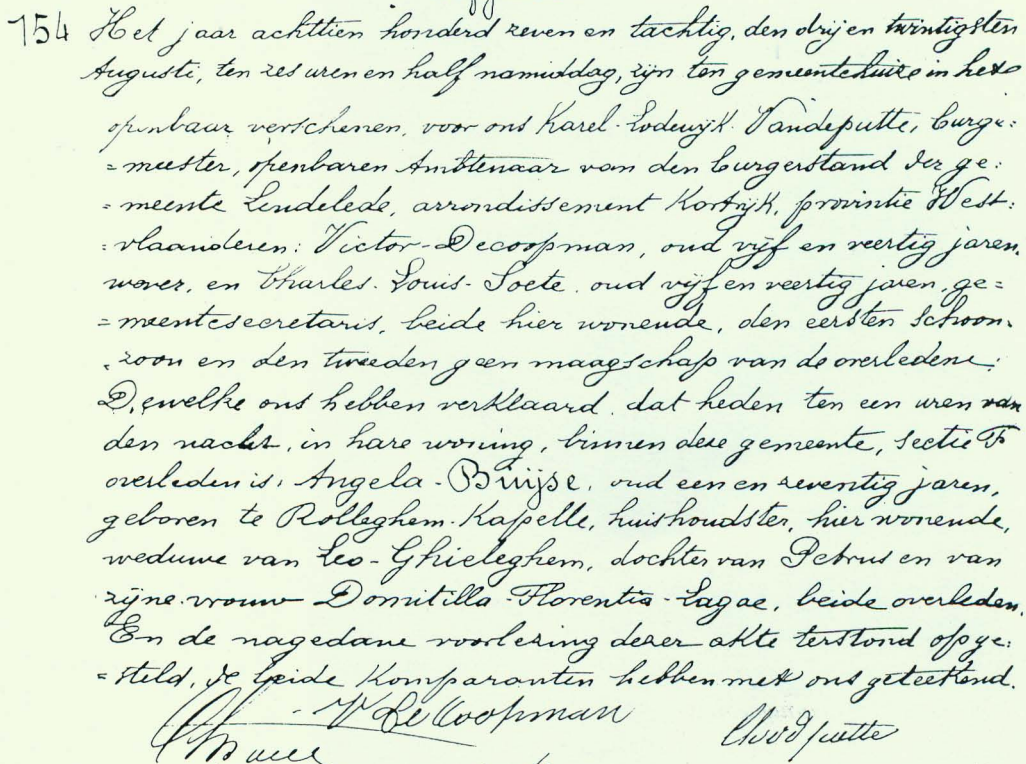 154 Het jaar achttien honderd zeven en tachtig, den drij en twintigsten
Augusti, ten zes uren en half namiddag, zijn ten gemeentehuize in het
openbaar verschenen, voor ons Karel-Lodewijk Vandeputte, burge:
=meester, openbaren Ambtenaar van den burgerstand der ge:
=meente Lendelede, arrondissement Kortrijk, provintie West:
:vlaanderen: Victor-Decoopman, oud vijf en veertig jaren,
wever, en Charles-Louis-Soete, oud vijf en veertig jaren, ge=
=meentesecretaris, beide hier wonende, den eersten schoon-
-zoon en den tweeden geen maagschap van de overledene:
Dewelke ons hebben verklaard, dat heden ten een uren van
den nacht, in hare woning, binnen deze gemeente, sectie F
overleden is: Angela-Buijse, oud een en zeventig jaren,
geboren te Rolleghem-Kapelle, huishoudster, hier wonende,
weduwe van Leo-Ghieleghem, dochter van Petrus en van
zijne vrouw Domitilla-Florentia-Lagae, beide overleden.
En de nagedane voorlezing dezer akte terstond opge:
=steld, de beide Komparanten hebben met ons geteekend.
V DeCoopman